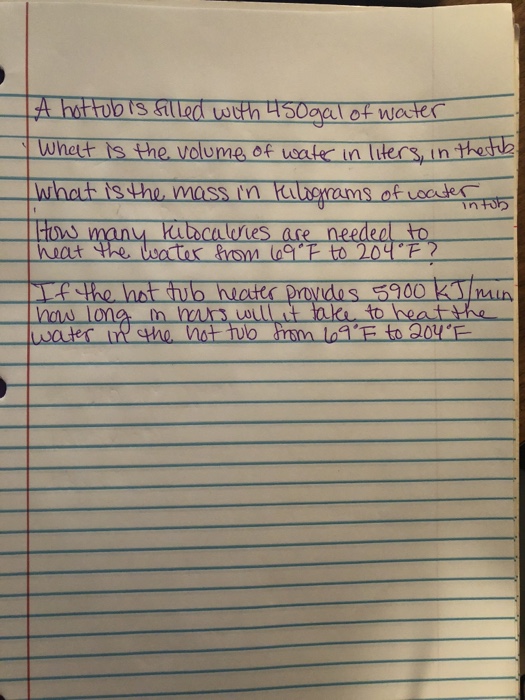 A hottub is filled with 450gal of water
What is the volume of water in liters, in the tub
What is the mass in kilograms of water
in tub
How many kilocalories are needed to
heat the water from 69°F to 204°F?
If the hot tub heater provides 5900 KJ/min
how long in hours will it take to heat the
water in the hot tub from 69°F to 204°F